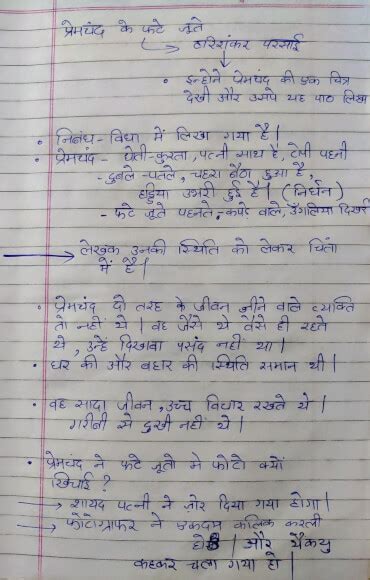 प्रेमचंद के फटे जूते
हरिशंकर परसाई
• इन्होंने प्रेमचंद की एक चित्र
देखी और उसपे यह पाठ लिखा
• निबंध-विधा में लिखा गया है।
• प्रेमचंद - धोती-कुरता, पत्नी साथ है, टोपी पहनी
- दुबले-पतले, चहरा बैठा हुआ है,
हड्डिया उभरी हुई है। (निर्धन)
- फटे जूते पहनते, कपड़े वाले, उँगलिया दिखरी
→ लेखक उनकी स्थिति को लेकर चिंता
में है।
• प्रेमचंद दो तरह के जीवन जीने वाले व्यक्ति
तो नहीं थे। वह जैसे थे वैसे ही रहते
थे, उन्हें दिखावा पसंद नहीं था।
• घर की और बहार की स्थिति समान थी।
• वह सादा जीवन, उच्च विचार रखते थे।
गरीबी से दुखी नहीं थे।
• प्रेमचंद ने फटे जूतो मे फोटो क्यों
खिंचाई?
→ शायद पत्नी ने ज़ोर दिया गया होगा।
→ फोटोग्राफर ने एकदम कलिक करली
हो। और थैंकयु
कहकर चला गया हो।